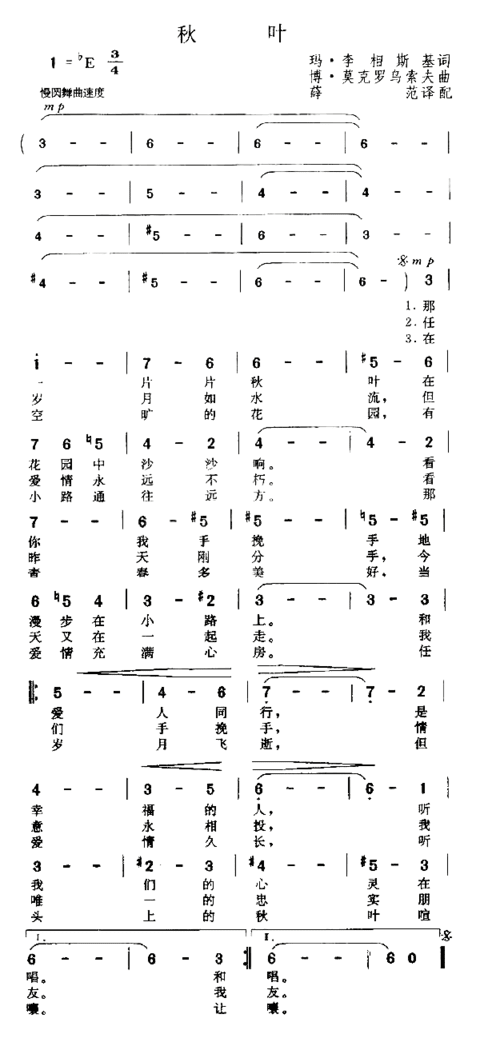 秋 叶
1 = ♭E 3/4
玛·李相斯基词
博·莫克罗乌索夫曲
薛 范译配
慢圆舞曲速度
mp
( 3 - - | 6 - - | 6 - - | 6 - - |
3 - - | 5 - - | 4 - - | 4 - - |
4 - - | #5 - - | 6 - - | 3 - - |
mp
#4 - - | #5 - - | 6 - - | 6 - ) 3 |
1. 那
2. 任
3. 在
1 - - | 7 - 6 | 6 - - | #5 - 6 |
一 片 片 秋 叶 在
岁 月 如 水 流，但
空 旷 的 花 园，有
7 6 ♮5 | 4 - 2 | 4 - - | 4 - 2 |
花 园 中 沙 沙 响。 看
爱 情 永 远 不 朽。 看
小 路 通 往 远 方。 那
7 - - | 6 - #5 | #5 - - | ♮5 - #5 |
你 我 手 挽 手 地
昨 天 刚 分 手，今
青 春 多 美 好，当
6 ♮5 4 | 3 - #2 | 3 - - | 3 - 3 |
漫 步 在 小 路 上。 和
天 又 在 一 起 走。 我
爱 情 充 满 心 房。 任
5 - - | 4 - 6 | 7 - - | 7 - 2 |
爱 人 同 行， 是
们 手 挽 手， 情
岁 月 飞 逝， 但
4 - - | 3 - 5 | 6 - - | 6 - 1 |
幸 福 的 人， 听
意 永 相 投， 我
爱 情 久 长， 听
3 - - | #2 - 3 | #4 - - | #5 - 3 |
我 们 的 心 灵 在
唯 一 的 忠 实 朋
头 上 的 秋 叶 喧
1. 2.
6 - - | 6 - 3 :| 6 - - | 6 0 |
唱。 和 唱。
友。 我 友。
嚷。 让 嚷。